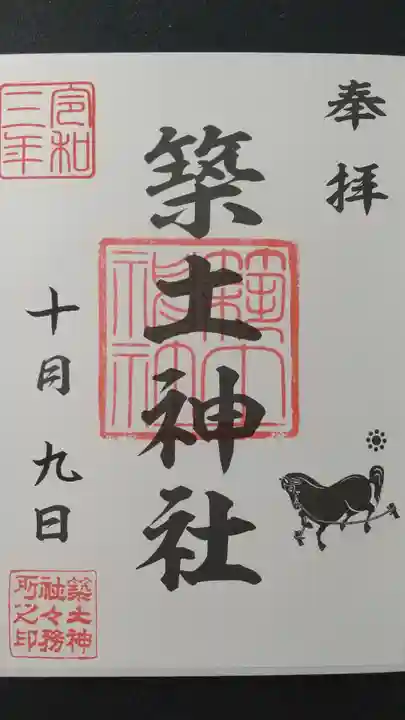 奉拝
築土神社
築土神社
令和
三年
十月九日
築土神
社々務
所之印